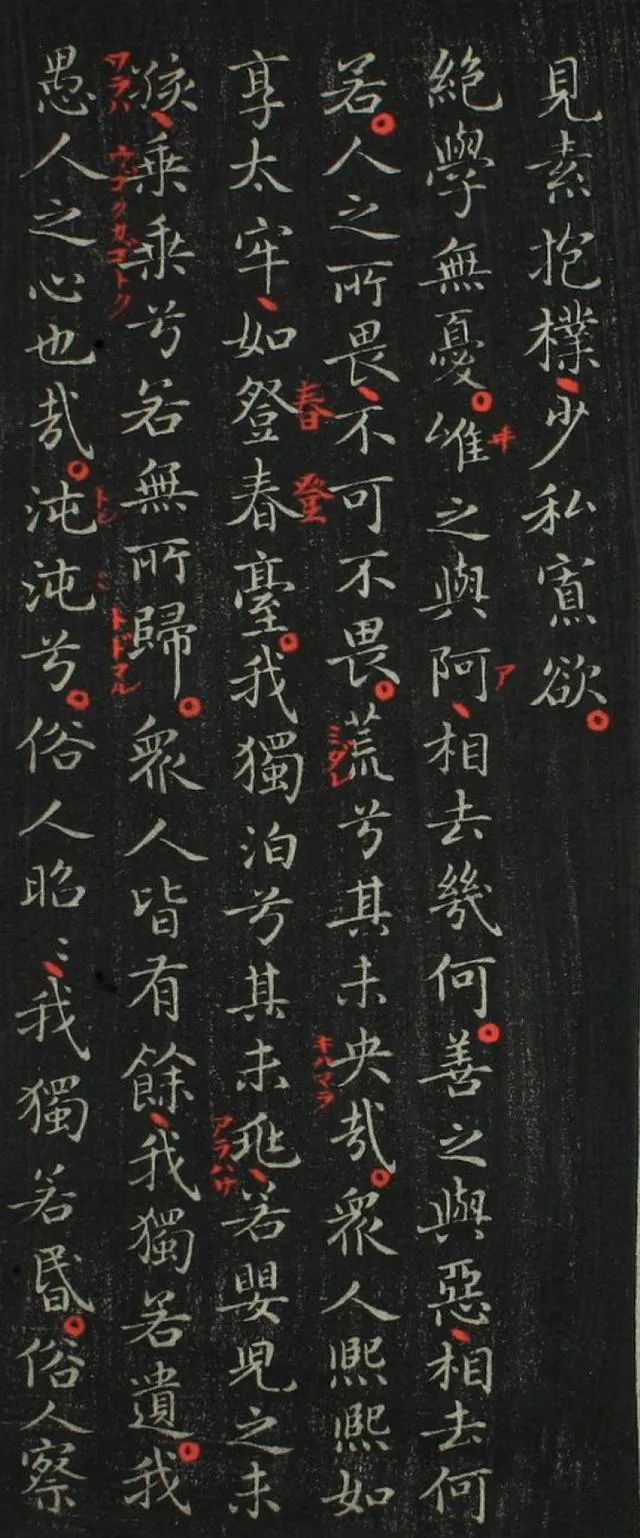 見素抱樸、少私寡欲。
絶學無憂。唯之與阿、相去幾何。善之與惡、相去何
若。人之所畏、不可不畏。荒兮其未央哉。衆人熙熙如
享太牢、如登春臺。我獨泊兮其未兆、若嬰兒之未
孩、乗乗兮若無所歸。衆人皆有餘、我獨若遺。我
愚人之心也哉。沌沌兮。俗人昭〻、我獨若昬。俗人察
ヰ
ア
ミダレ
キハマラ
春
登
アラハサ
ワラハ
ウゴクガゴトク
トドマル
トン
ミ